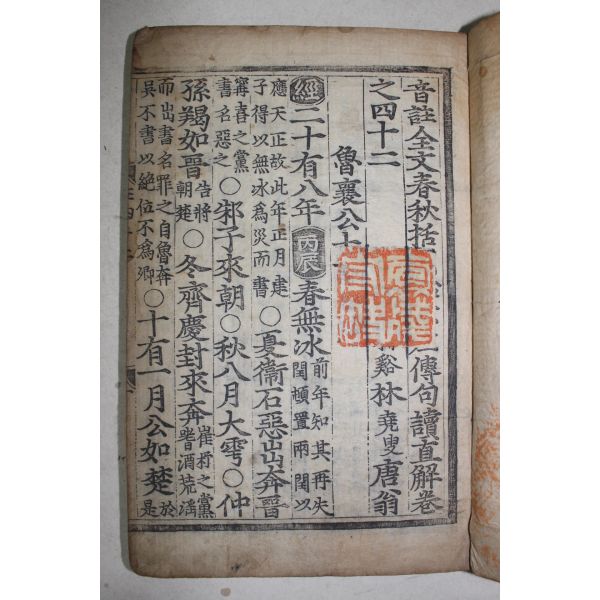 音註全文春秋括傳句讀直解卷
之四十二 谿林堯叟唐翁
魯襄公十
經二十有八年丙辰春無冰前年知其再失閏頓置兩閏以
應天正故此年正月建子得以無冰爲災而書○夏衛石惡出奔晉
甯喜之黨書名惡之○邾子來朝○秋八月大雩○仲
孫羯如晉告將朝楚○冬齊慶封來奔崔杼之黨耆酒荒淫
而出書名罪之自魯奔吳不書以絶位不爲卿○十有一月公如楚於是